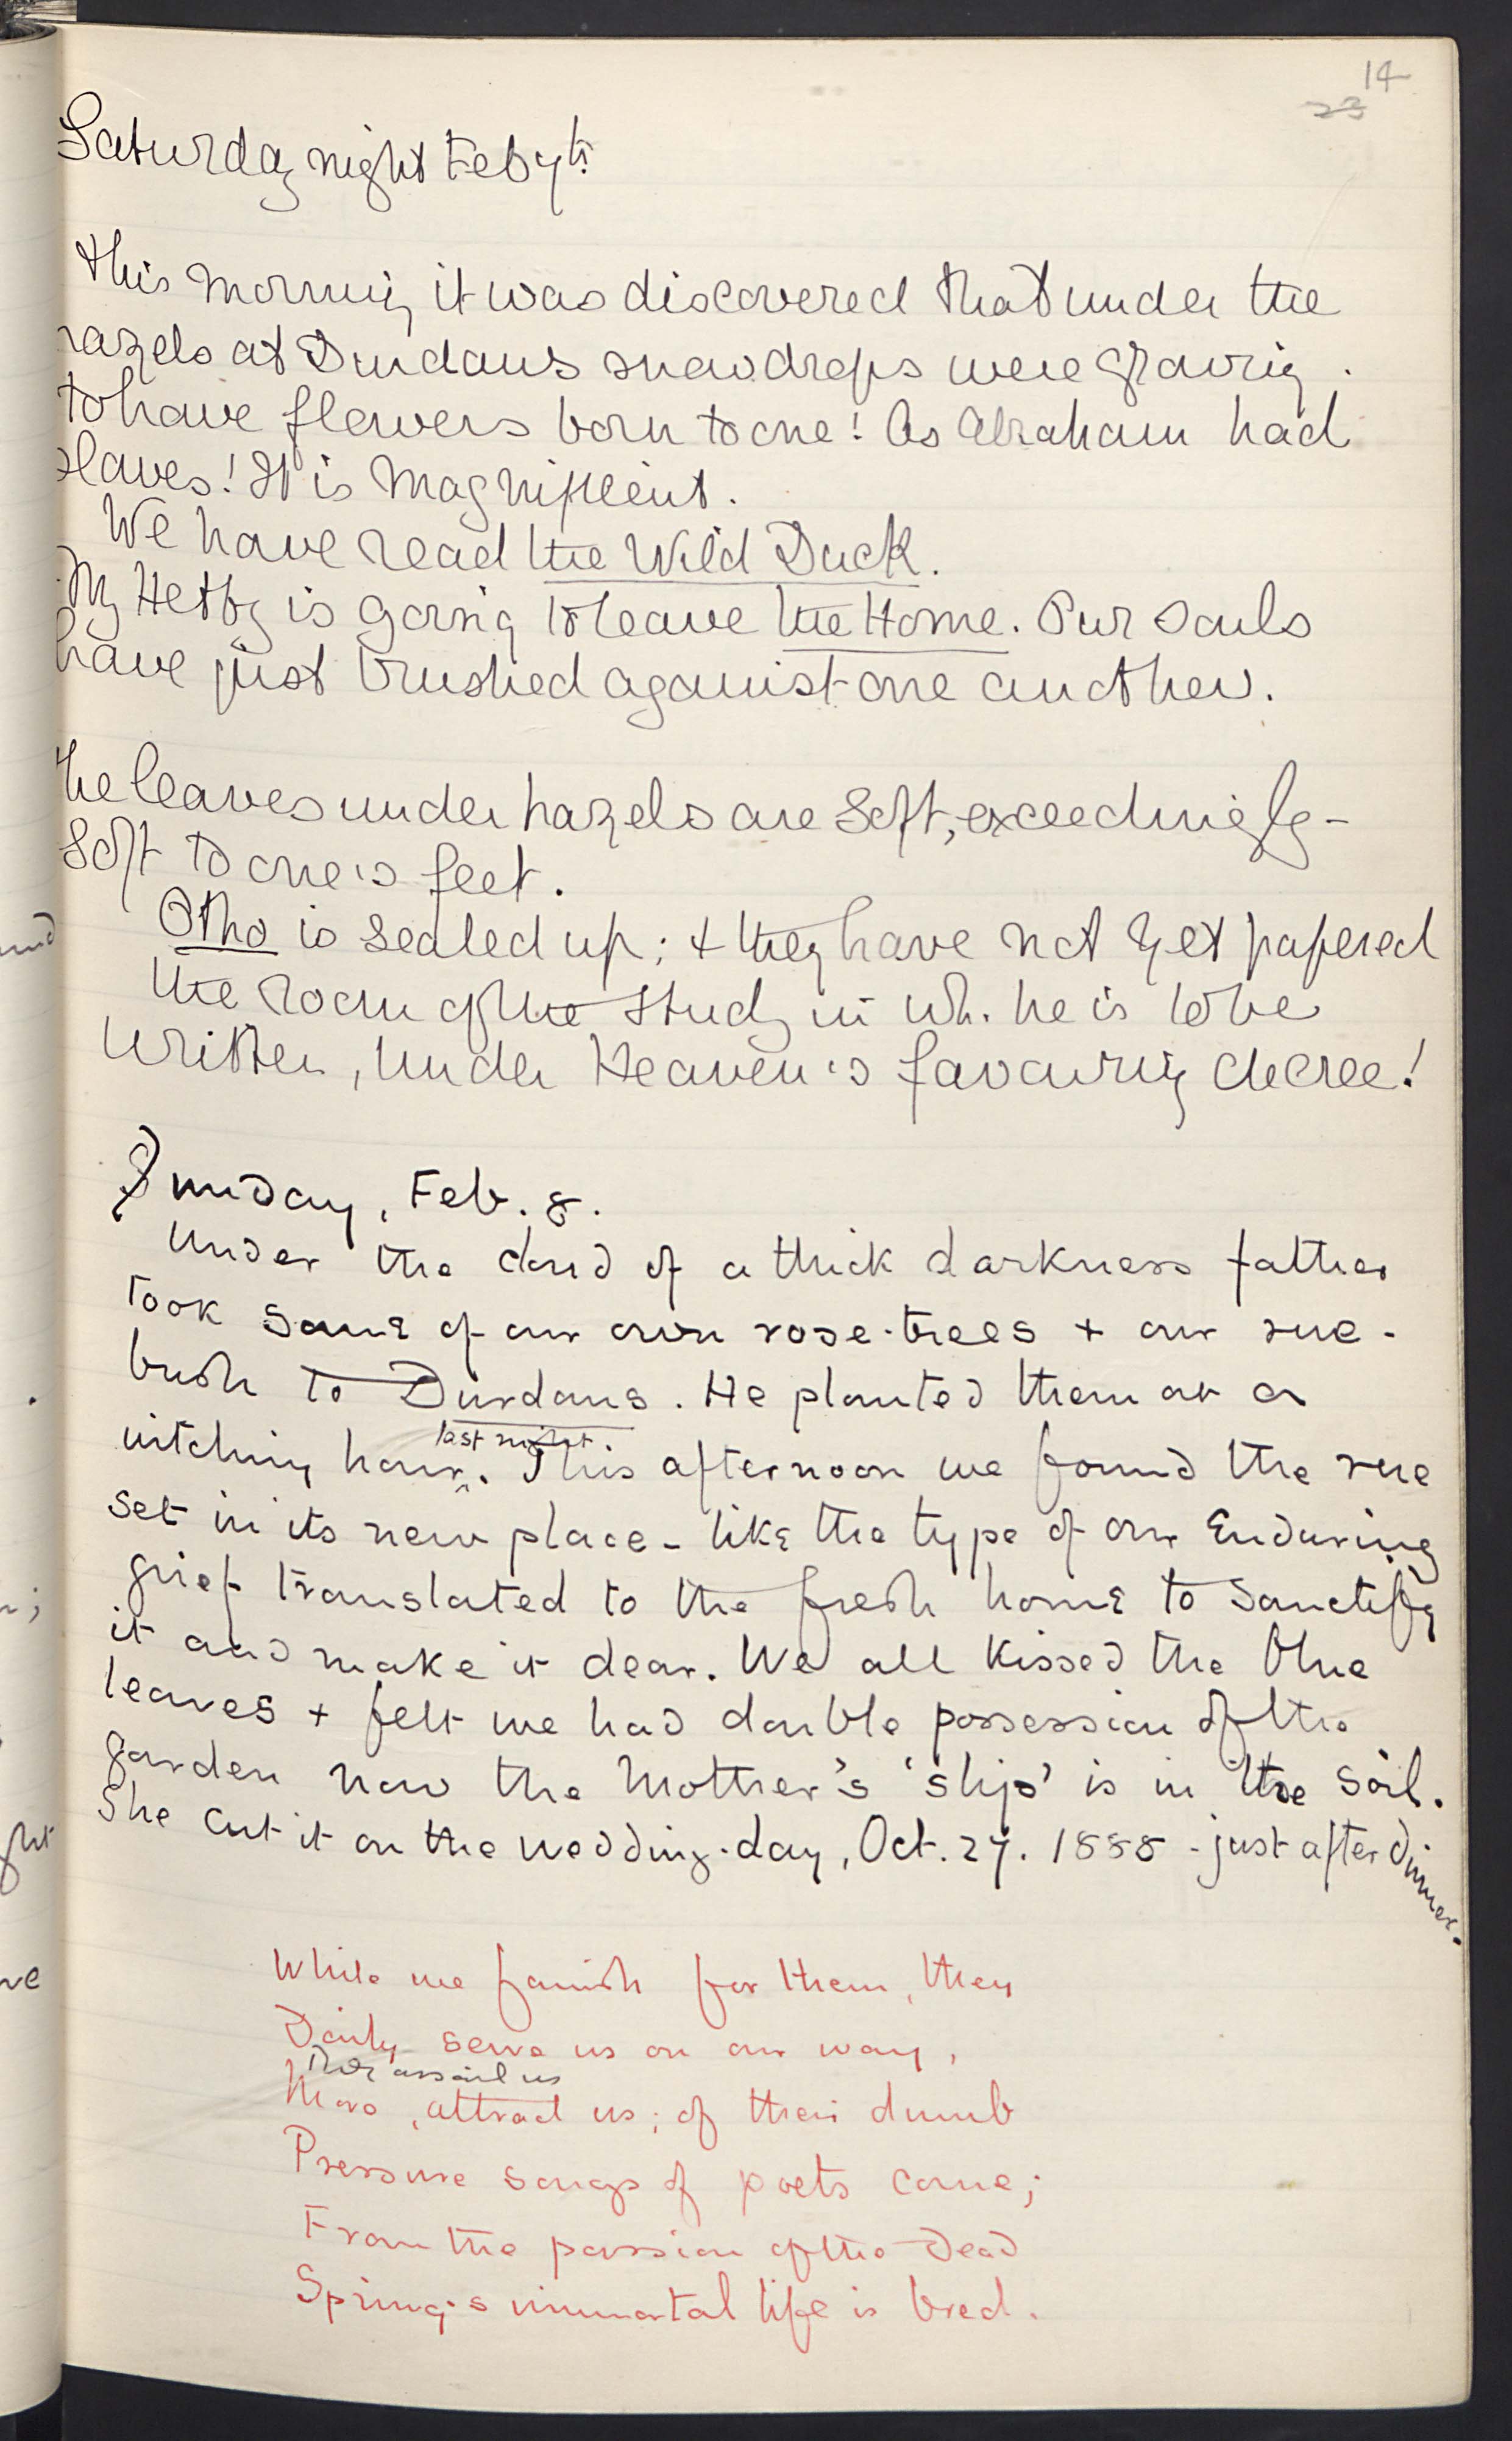 14
23
Saturday night Feb 7th
This morning it was discovered that under the
hazels at Durdans snowdrops were growing.
To have flowers born to one! As Abraham had
slaves! It is magnificent.
We have read the Wild Duck.
My Hetty is going to leave the Home. Our souls
have just brushed against one another.
The leaves under hazels are soft, exceedingly -
soft to one's feet.
Otho is sealed up; + they have not yet papered
the room of the study in wh. he is to be
written, under Heaven's favouring decree!
Sunday, Feb. 8.
Under the cloud of a thick darkness father
took some of our own rose-trees + our rue-
bush to Durdans. He planted them at a
last night.
witching hour. This afternoon we found the rue
set in its new place - like the type of our Enduring
grief translated to the fresh home to sanctify
it and make it dear. We all kissed the blue
leaves + felt we had double possession of the
garden now the Mother's 'slip' is in the soil.
She cut it on the wedding-day, Oct. 27. 1888 - just after dinner.
While we famish for them, they
Daily serve us on our way,
assail us
More, attract us; of their dumb
Pressure songs of poets come;
From the passion of the Dead
Spring's immortal life is bred.